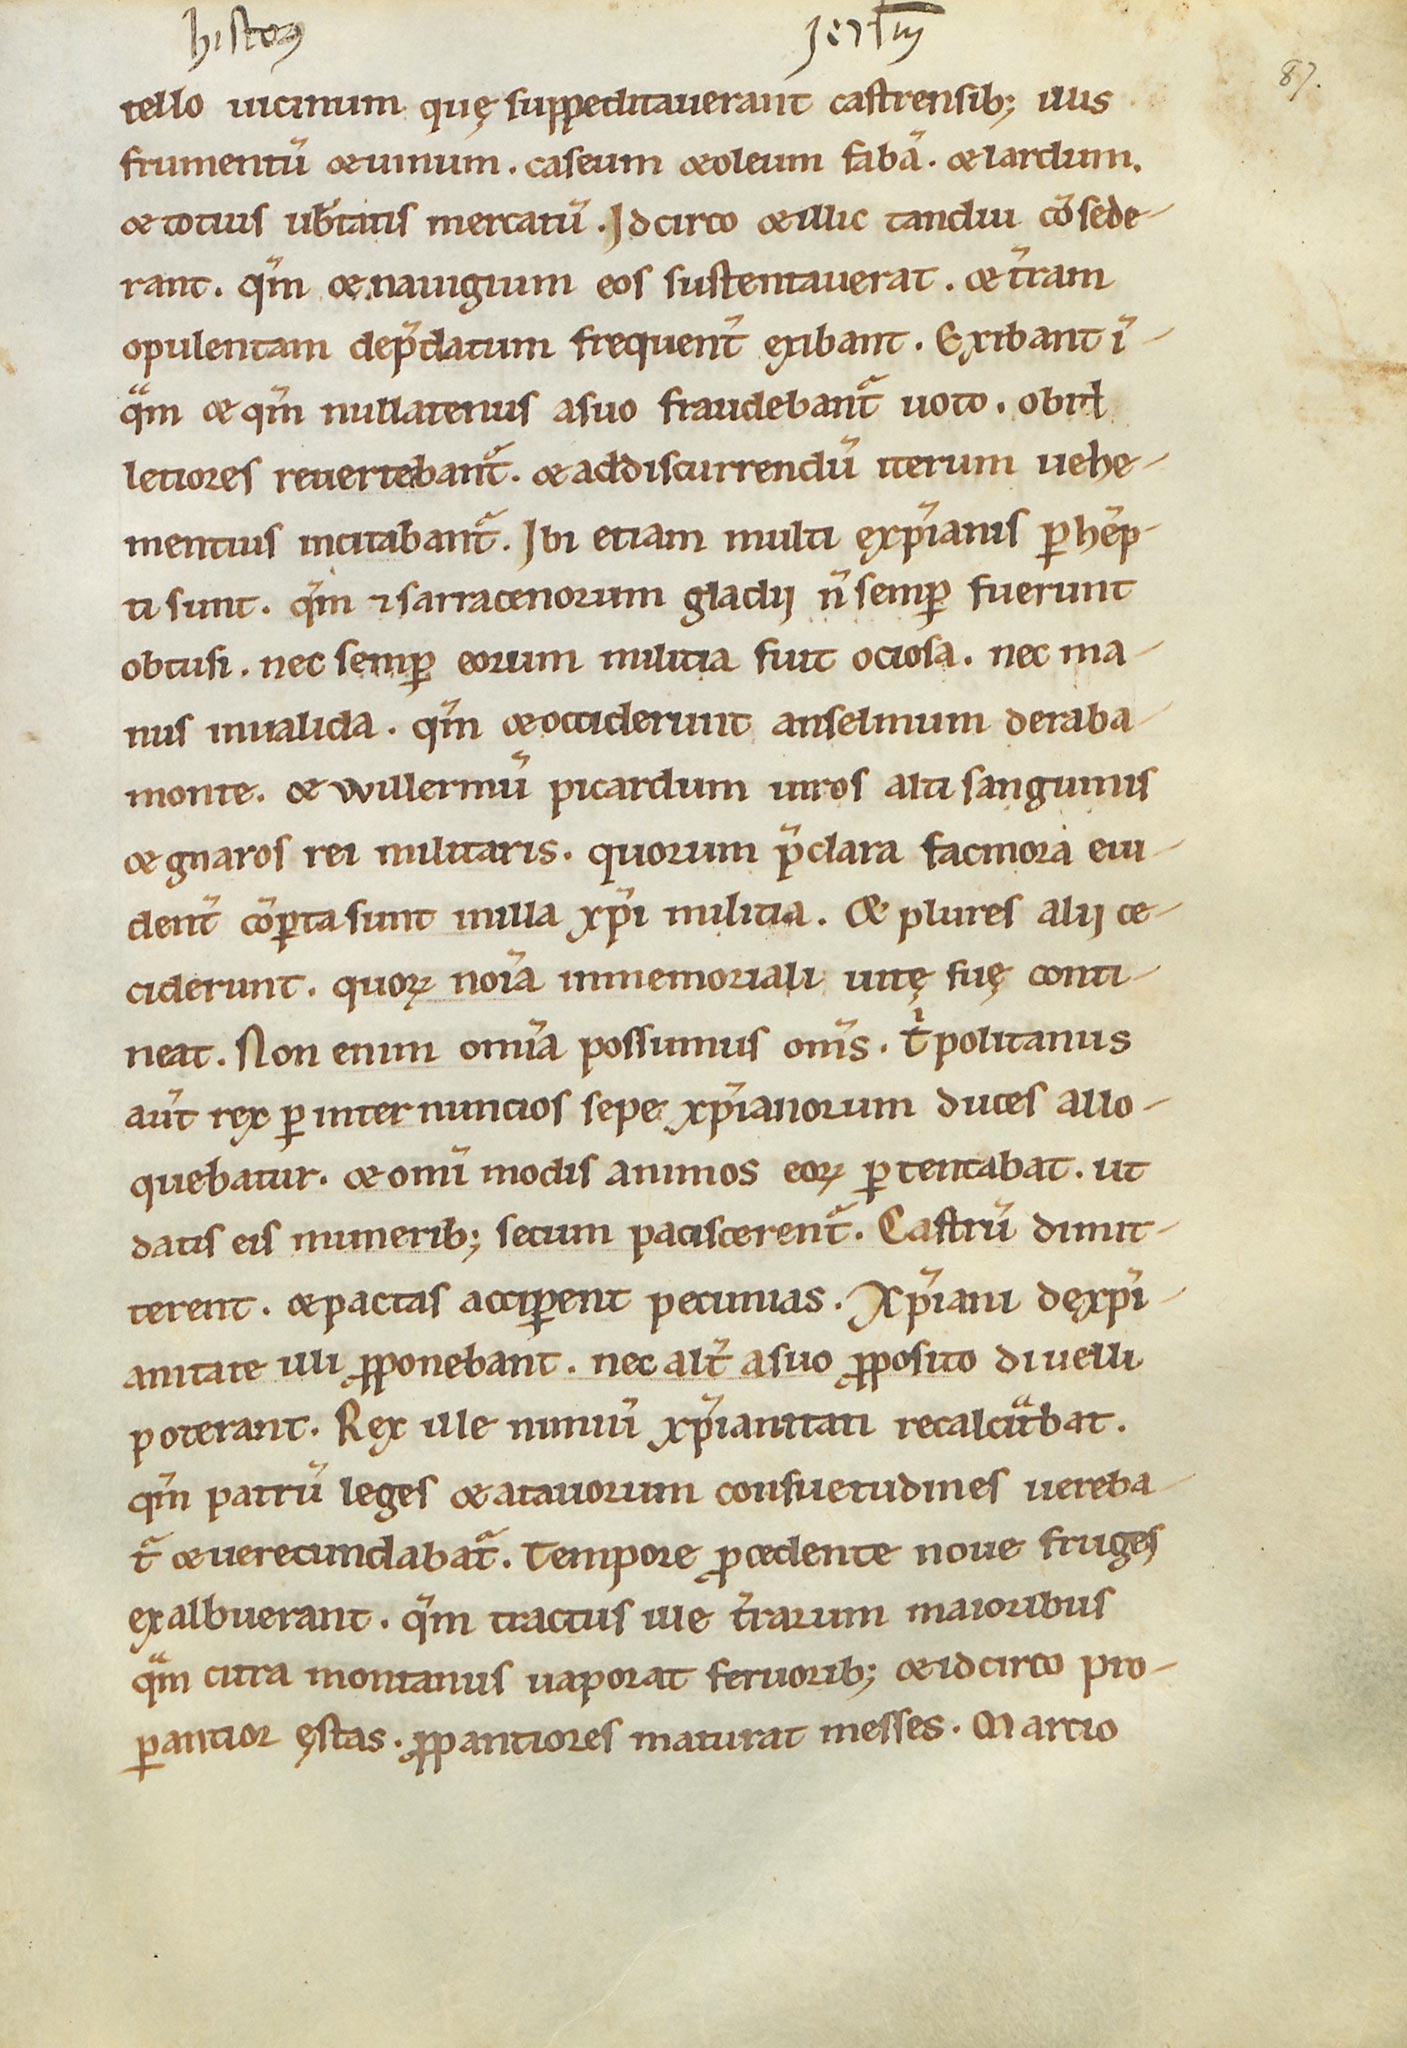 histor̄ Jer̄lm̄
87.
tello uicinum quę suppeditauerant castrensib; illis
frumentū & uinum . caseum & oleum fabā . & lardum.
& totius ub̄tatis mercatū . Idcirco & illic tandiu cōsede-
rant . qm̄ & nauigium eos sustentauerat . & t̄ram
opulentam dep̄datum frequent̄ exibant . Exibant ī-
qᵃm & qm̄ nullatenus a suo fraudebant᷑ uoto .
letiores reuertebant᷑ . & ad discurrendū iterum uehe-
mentius incitabant᷑ . Ibi etiam multi ex xp̄ianis ꝑhēp-
ti sunt . qm̄ ⁊ sarracenorum gladij n̄ semꝑ fuerunt
obtusi . nec semꝑ eorum militia fuit ociosa . nec ma-
nus inualida . qm̄ & occiderunt anselmum de raba-
monte . & willermū picardum uiros alti sanguinis
& gnaros rei militaris . quorum p̄clara facinora eui-
dent̄ cōꝑta sunt in illa xp̄i militia . & plures alij ce-
ciderunt . quoꝝ noīa in memoriali uitę suę conti-
neat . Non enim omīa possumus om̄s . tⁱpolitanus
aut̄ rex ꝑ internuncios sepe xp̄ianorum duces allo-
quebatur . & omī modis animos eoꝝ ꝑtentabat . ut
datis eis munerib; secum paciscerent᷑ . Castrū dimit-
terent . & pactas acciꝑent pecunias . Xp̄iani de xp̄i-
anitate illi ꝓponebant . nec alit̄ a suo ꝓposito diuelli
poterant . Rex ille nimiū xp̄ianitati recalcitᵃbat .
qm̄ patrū leges & atauorum consuetudines uereba-
t᷑ & uerecundabat᷑ . Tempore ꝓcedente noue fruges
exalbuerant . qm̄ tractus ille t̄rarum maioribus
qᵃm citra montanus uaporat feruorib; & idcirco pro-
ꝑantior ęstas . ꝓꝑantiores maturat messes . Martio